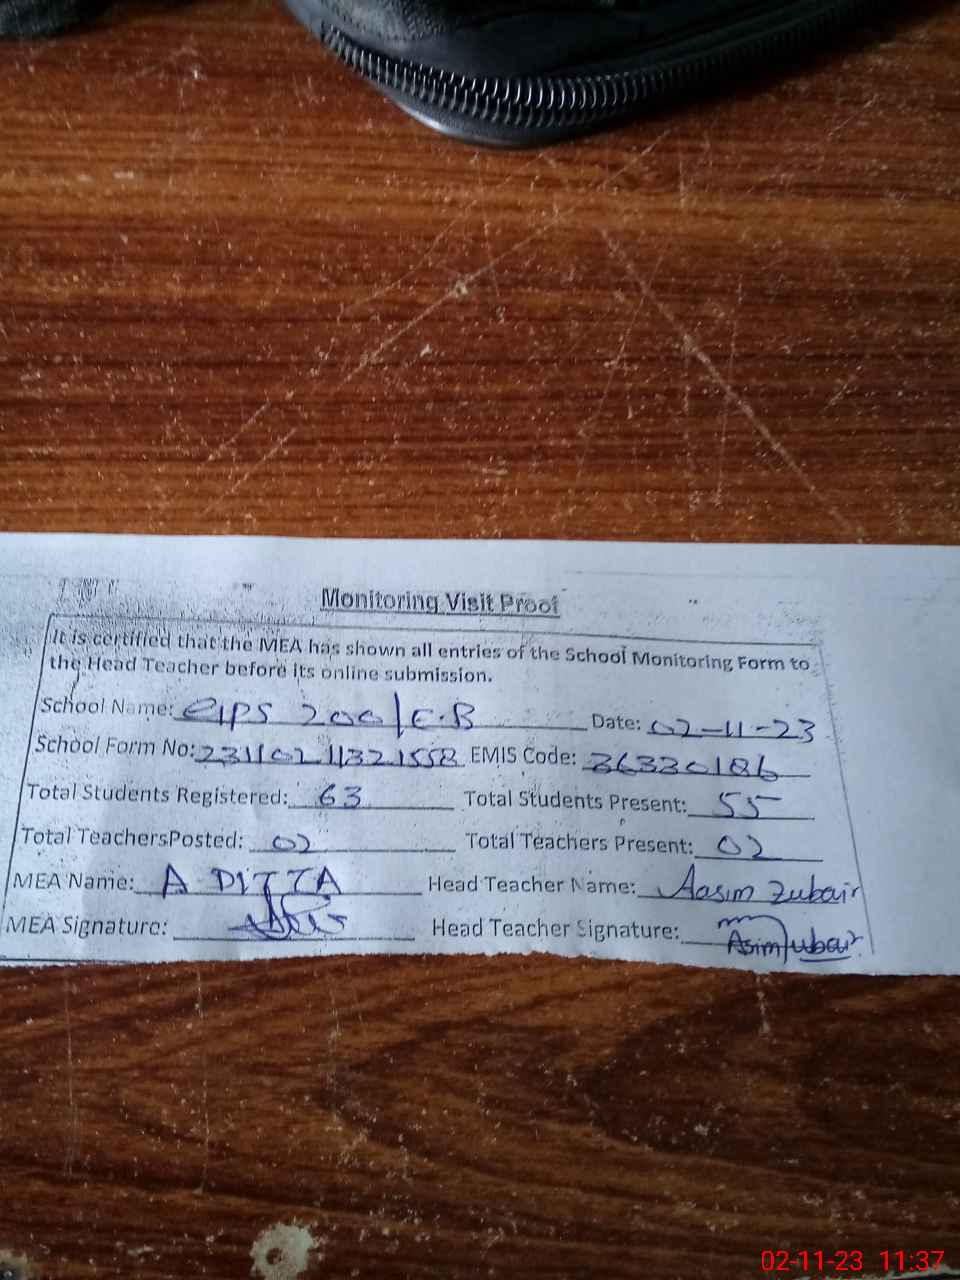 Monitoring Visit Proof
It is certified that the MEA has shown all entries of the School Monitoring Form to
the Head Teacher before its online submission.
School Name: GPS 200/E.B Date: 02-11-23
School Form No: EMIS Code: 36330186
Total Students Registered: 63 Total Students Present: 55
Total TeachersPosted: 02 Total Teachers Present: 02
MEA Name: A DITTA Head Teacher Name: Aasim Zubair
MEA Signature: Head Teacher Signature: Asim Zubair
02-11-23 11:37